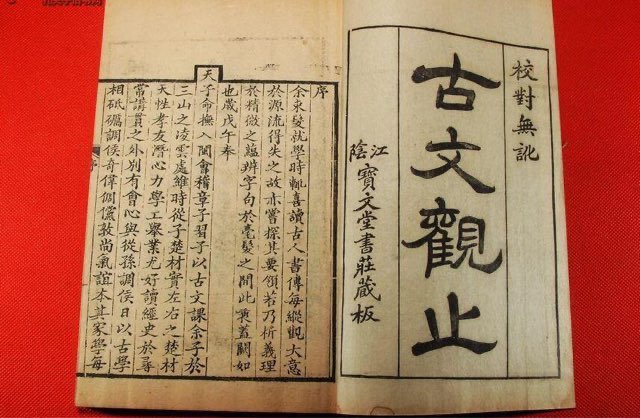 校對無訛
古文觀止
江陰
寶文堂書莊藏板
序
余束髮就學時輒喜讀古人書傳每縱觀大意
於源流得失之故亦嘗探其要領若乃析義理
於精微之蘊辨字句於毫髮之間此衷蓋闕如
也歲戊午奉
天子命撫入閩會稽章子習子以古文課余子於
三山之凌雲處維時從子楚材實左右之楚材
天性孝友潛心力學工舉業尤好讀經史於尋
常講貫之外別有會心與從孫調侯日以古學
相砥礪調侯奇偉倜儻敦尚氣誼本其家學每
序